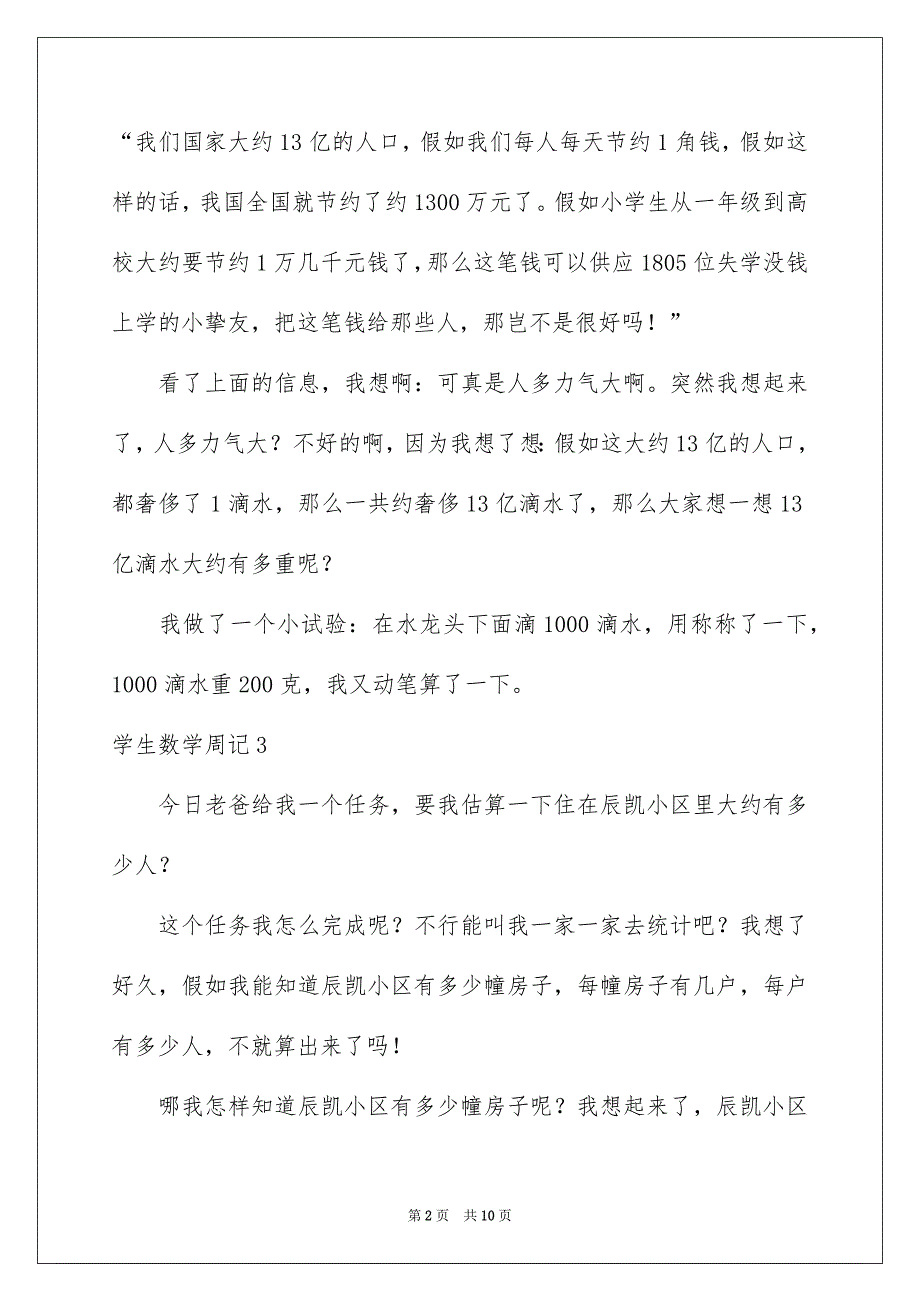 “我们国家大约 13 亿的人口，假如我们每人每天节约 1 角钱，假如这
样的话，我国全国就节约了约 1300 万元了。假如小学生从一年级到高
校大约要节约 1 万几千元钱了，那么这笔钱可以供应 1805 位失学没钱
上学的小挚友，把这笔钱给那些人，那岂不是很好吗！”
看了上面的信息，我想啊：可真是人多力气大啊。突然我想起来
了，人多力气大？不好的啊，因为我想了想：假如这大约 13 亿的人口，
都奢侈了 1 滴水，那么一共约奢侈 13 亿滴水了，那么大家想一想 13
亿滴水大约有多重呢？
我做了一个小试验：在水龙头下面滴 1000 滴水，用称称了一下，
1000 滴水重 200 克，我又动笔算了一下。
学生数学周记 3
今日老爸给我一个任务，要我估算一下住在辰凯小区里大约有多
少人？
这个任务我怎么完成呢？不行能叫我一家一家去统计吧？我想了
好久，假如我能知道辰凯小区有多少幢房子，每幢房子有几户，每户
有多少人，不就算出来了吗！
哪我怎样知道辰凯小区有多少幢房子呢？我想起来了，辰凯小区
第 2 页 共 10 页